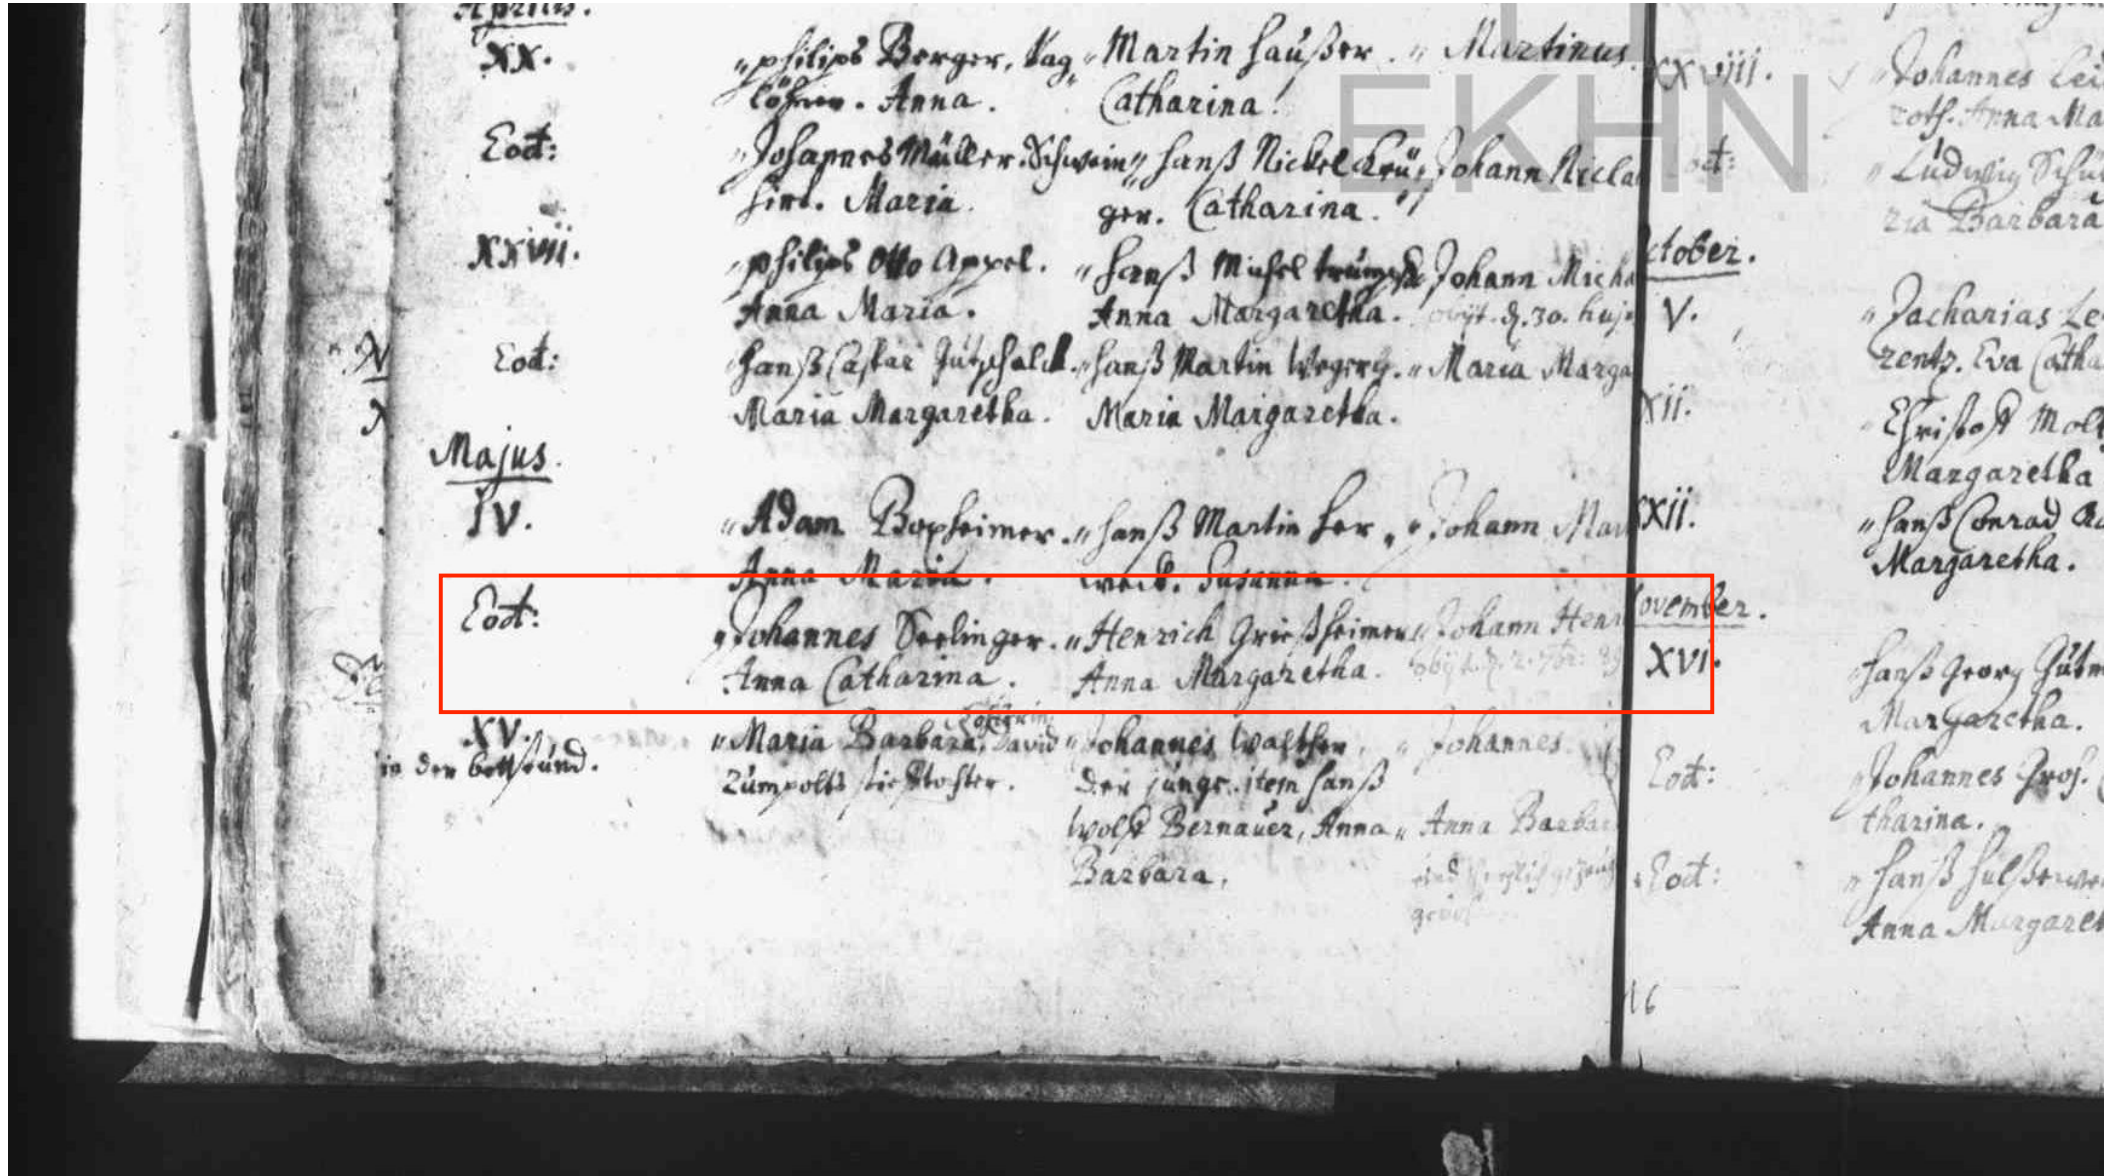 Aprilis.
XX.
„ philips Berger, Tag„
löhner. Anna.
„ Martin Haußer.
Catharina.
„ Martinus.
Eod:
„ Johannes Müller. Schwein„
hirt. Maria.
„ Hanß Nickel Krü„
ger. Catharina.
„ Johann Nicla
XXVIII.
„ philips Otto Appel.
Anna Maria.
„ Hanß Michel
Anna Margaretha.
Johann Micha
obijt. d. 30. huj
Eod:
Hanß Caspar
Maria Margaretha.
„ Hanß Martin
Maria Margaretha.
„ Maria Marga
Majus.
IV.
„ Adam Boxheimer.
Anna Maria.
„ Hanß Martin Her„
weck. Susanna.
„ Johann Mar
Eod:
„ Johannes Seelinger.
Anna Catharina.
„ Henrich Grießheimer
Anna Margaretha.
„ Johann Henr
obijt. d. 2. 7br:
XV.
in der bettstund.
„ Maria Barbara, David
Zümpolts stieftochter.
„ Johannes Walther,
der jüngr. item Hanß
Wolff Bernauer, Anna
Barbara.
„ Johannes.
„ Anna Barbar
EKHN
XXVIII.
„ Johannes Lei
roth. Anna Ma
Eod:
„ Ludwig Schü
ria Barbara
October.
V.
„ Zacharias Le
rentz. Eva Catha
XII.
Christoff Mol
Margaretha
XXII.
„ Hanß Conrad
Margaretha.
November.
XVI.
Hanß Georg Gutm
Margaretha.
Eod:
„ Johannes Groß.
tharina.
Eod:
„ Hanß
Anna Margaret
16